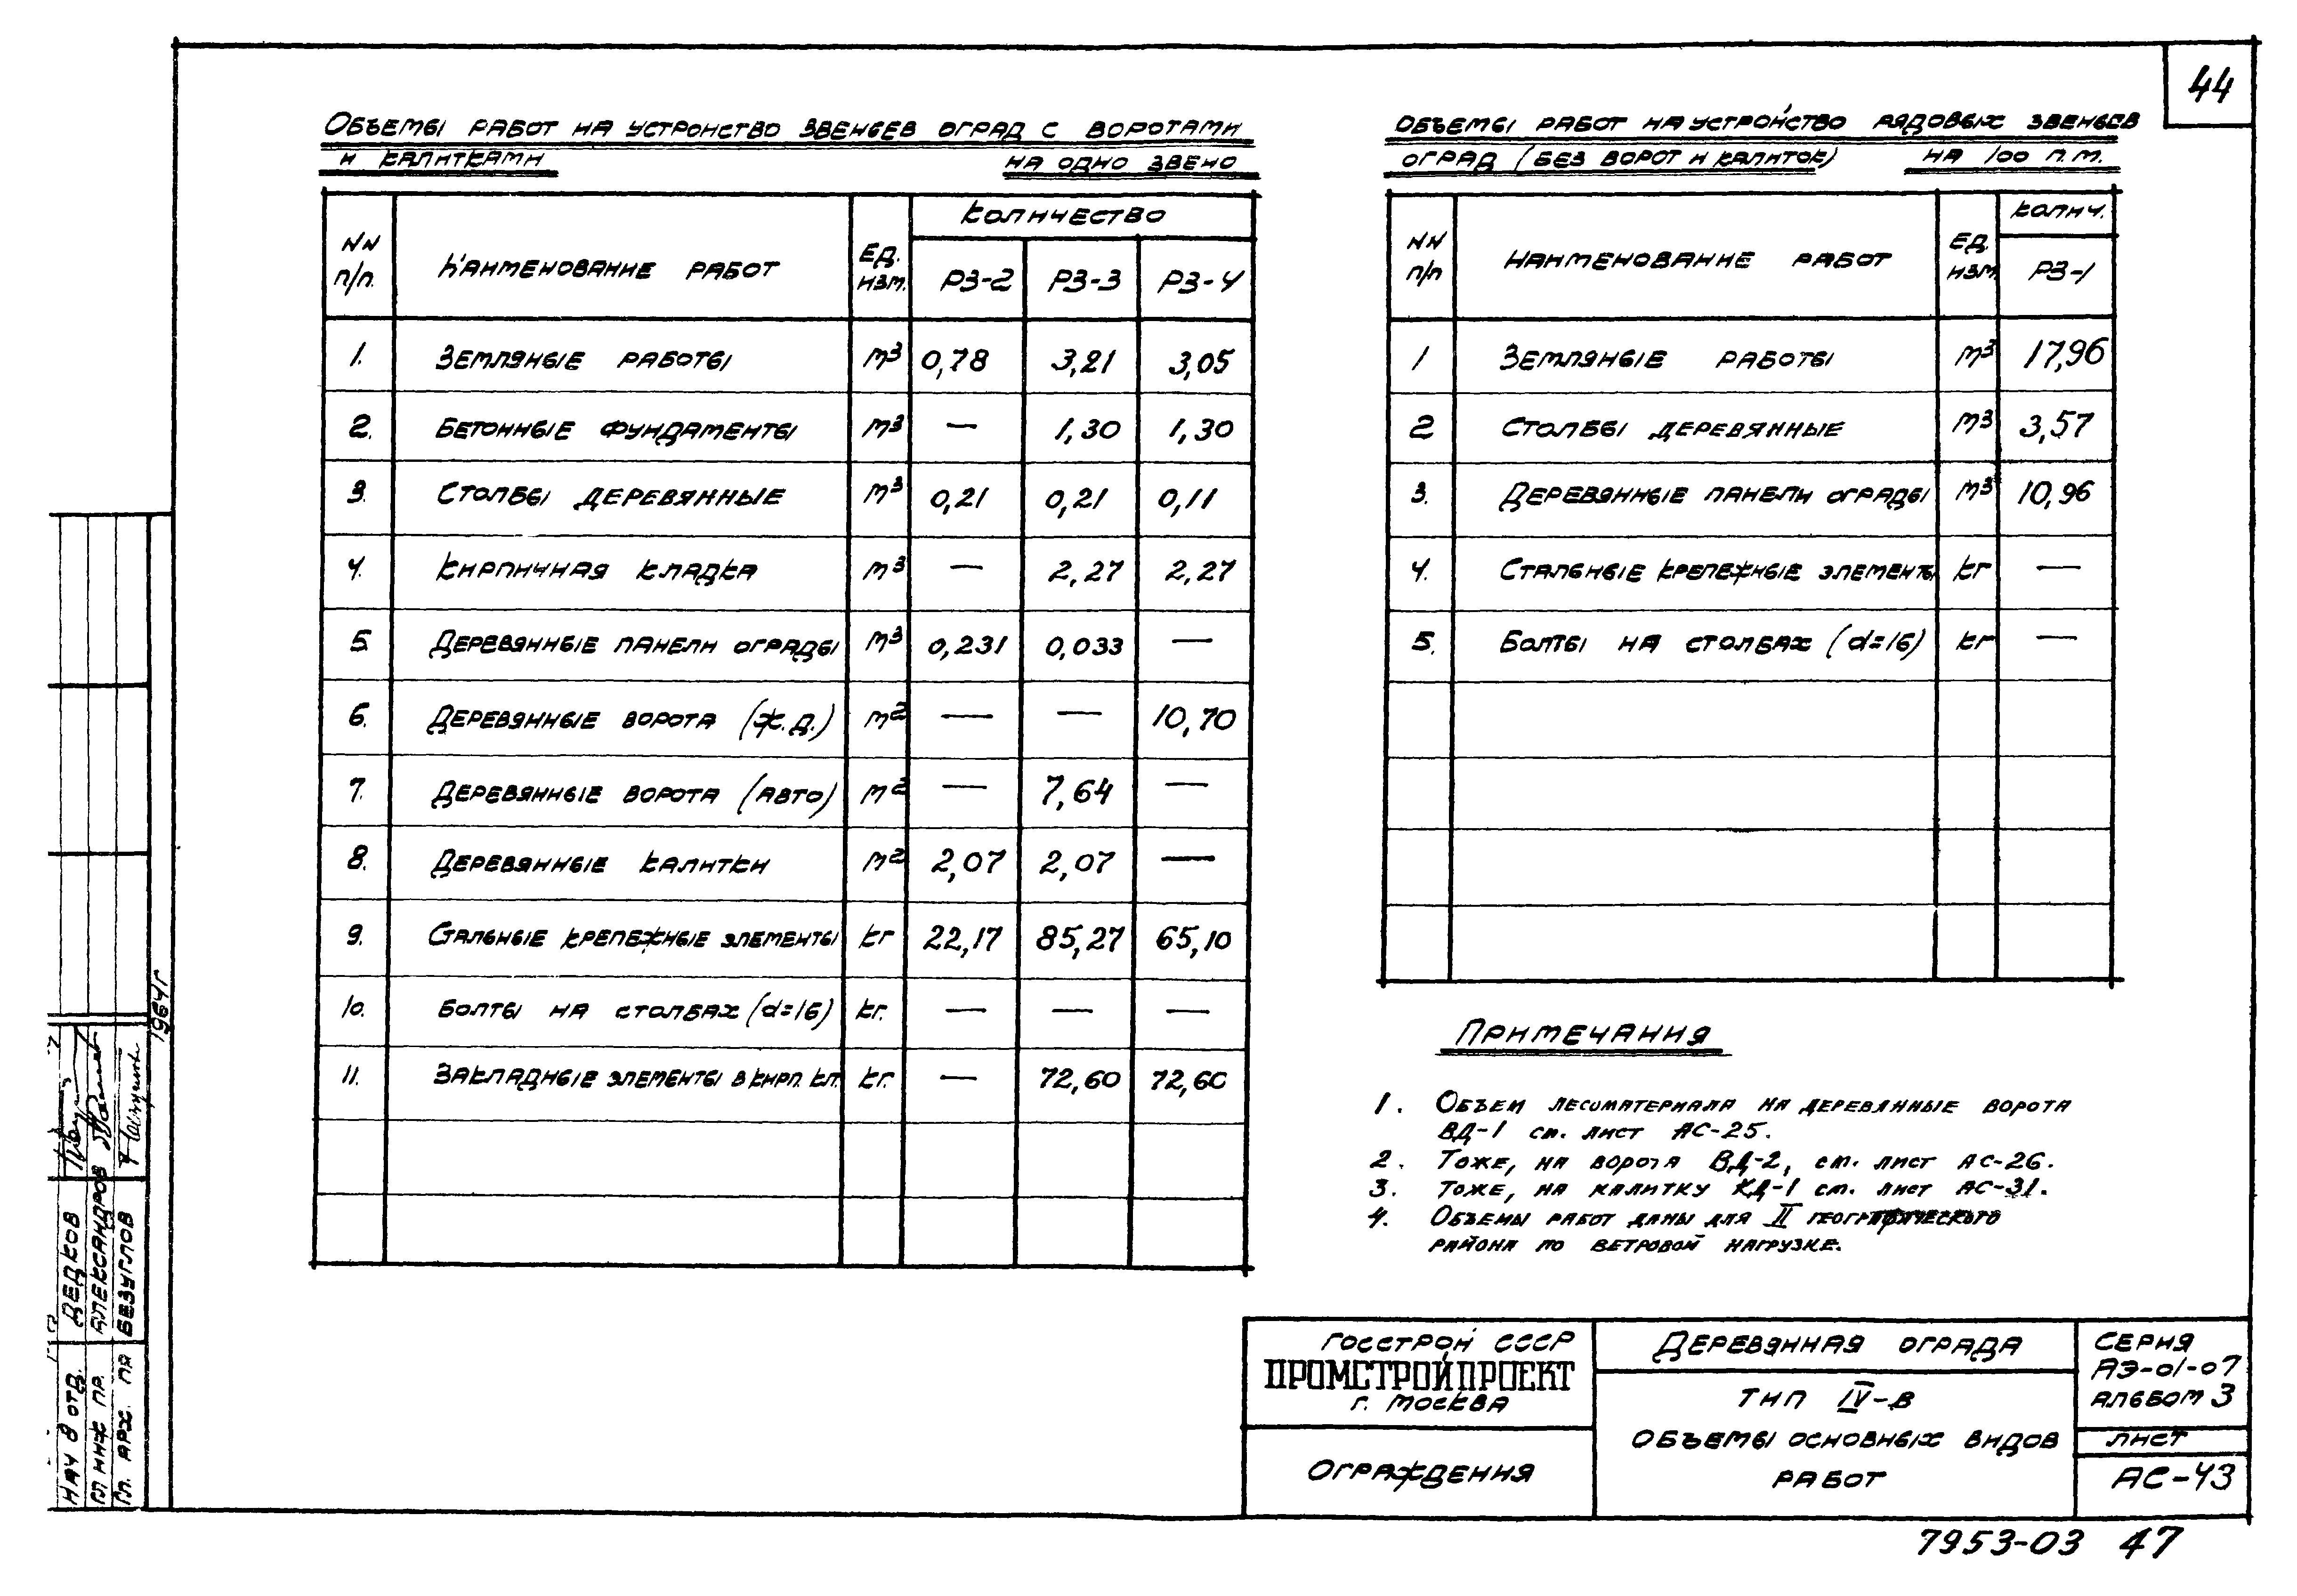 44
Объемы работ на устройство звеньев оград с воротами
и калитками на одно звено
NN п/п. Наименование работ Ед. изм. Количество
РЗ-2 РЗ-3 РЗ-4
1. Земляные работы м3 0,78 3,21 3,05
2. Бетонные фундаменты м3 — 1,30 1,30
3. Столбы деревянные м3 0,21 0,21 0,11
4. Кирпичная кладка м3 — 2,27 2,27
5 Деревянные панели ограды м3 0,231 0,033 —
6. Деревянные ворота (ж.д.) м2 — — 10,70
7. Деревянные ворота (авто) м2 — 7,64 —
8. Деревянные калитки м2 2,07 2,07 —
9. Стальные крепежные элементы кг 22,17 85,27 65,10
10. Болты на столбах (d=16) кг. — — —
11. Закладные элементы в кирп. кл. кг. — 72,60 72,60
Объемы работ на устройство рядовых звеньев
оград (без ворот и калиток) на 100 п.м.
NN п/п Наименование работ Ед. изм. Колич.
РЗ-1
1 Земляные работы м3 17,96
2 Столбы деревянные м3 3,57
3. Деревянные панели ограды м3 10,96
4. Стальные крепежные элементы кг —
5. Болты на столбах (d=16) кг —
Примечания
1. Объем лесоматериала на деревянные ворота
ВД-1 см. лист АС-25.
2. Тоже, на ворота ВД-2, см. лист АС-26.
3. Тоже, на калитку КД-1 см. лист АС-31.
4. Объемы работ даны для II географического
района по ветровой нагрузке.
Госстрой СССР
ПРОМСТРОЙПРОЕКТ
г. Москва
Ограждения
Деревянная ограда
Тип IV-В
Объемы основных видов
работ
Серия
АЭ-01-07
Альбом 3
лист
АС-43
7953-03 47
1964г
Нач 8 отд. Дедков
Гл инж пр. Александров
Гл. арх. пр Безуглов